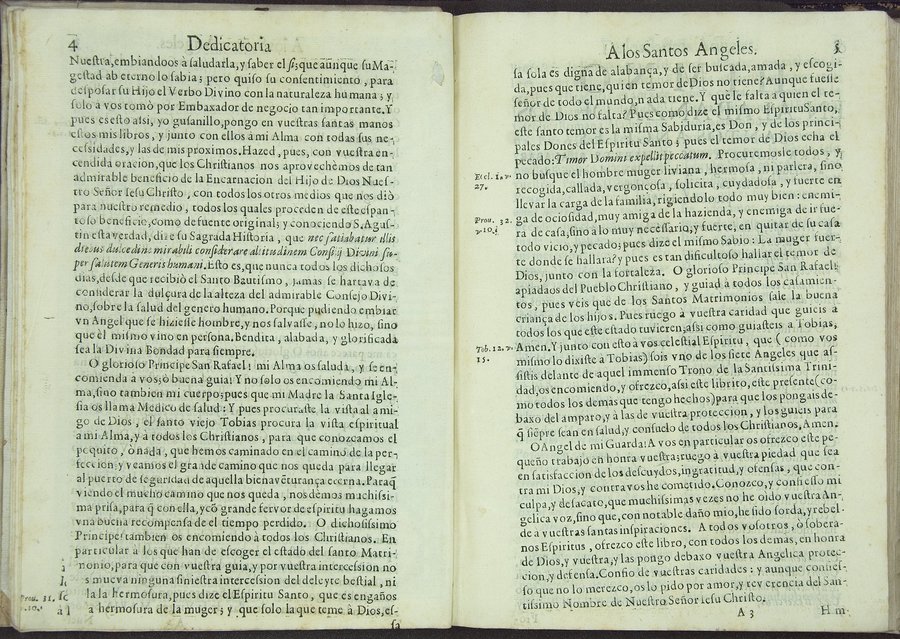 4 Dedicatoria
Nuestra, embiandoos à saludarla, y saber el si; que aũnque su Ma-
gestad ab eterno lo sabia; pero quiso su consentimiento, para
desposar su Hijo el Verbo Divino con la naturaleza humana; y
solo à vos tomò por Embaxador de negocio tan importante. Y
pues es esto assi, yo gusanillo, pongo en vuestras santas manos
estos mis libros, y junto con ellos à mi Alma con todas sus ne-
cessidades, y las de mis proximos. Hazed, pues, con vuestra en-
cendida oracion, que los Christianos nos aprovechèmos de tan
admirable beneficio de la Encarnacion del Hijo de Dios Nues-
tro Señor Iesu Christo, con todos los otros medios que nos diò
para nuestro remedio, todos los quales proceden de este espan-
toso beneficio, como de fuente original; y conociendo S. Agus-
tin esta verdad, dize su Sagrada Historia, que nec satiabatur illis
diebus dulcedine mirabili considerare altitudinem Consilij Divini su-
per salutem Generis humani. Esto es, que nunca todos los dichosos
dias, desde que recibiò el Santo Bautismo, jamas se hartava de
considerar la dulçura de la alteza del admirable Consejo Divi-
no, sobre la salud del genero humano. Porque pudiendo embiar
vn Angel que se hiziesse hombre, y nos salvasse, no lo hizo, sino
que èl mismo vino en persona. Bendita, alabada, y glorificada
sea la Divina Bondad para siempre.
O glorioso Principe San Rafael! mi Alma os saluda, y se en-
comienda à vos; ò buena guia! Y no solo os encomiendo mi Al-
ma, sino tambien mi cuerpo; pues que mi Madre la Santa Igle-
sia os llama Medico de salud: Y pues procuraste la vista al ami-
go de Dios, el santo viejo Tobias procura la vista espiritual
a mi Alma, y à todos los Christianos, para que conozcamos el
poquito, ò nada, que hemos caminado en el camino de la per-
feccion, y veamos el grande camino que nos queda para llegar
al puerto de seguridad de aquella bienavẽturança eterna. Paraq̃
viendo el mucho camino que nos queda, nos dèmos muchissi-
ma prisa, para q̃ con ella, y cõ grande fervor de espiritu hagamos
vna buena recompensa de el tiempo perdido. O dichosissimo
Principe! tambien os encomiendo à todos los Christianos. En
particular à los que han de escoger el estado del santo Matri-
monio, para que con vuestra guia, y por vuestra intercession no
s mueva ninguna siniestra intercession del deleyte bestial, ni
Prou. 31. la la hermosura, pues dize el Espiritu Santo, que es engaños
v.10. a hermosura de la muger; y que solo la que teme à Dios, es-
sa
A los Santos Angeles. 5
sa sola es digna de alabança, y de ser buscada, amada, y escogi-
da, pues que tiene, quien temor de Dios no tiene? Aunque fuesse
señor de todo el mundo, nada tiene. Y què le falta a quien el te-
mor de Dios no falta? Pues como dize el mismo Espiritu Santo,
este santo temor es la misma Sabiduria, es Don, y de los princi-
pales Dones del Espiritu Santo; pues el temor de Dios echa el
pecado: Timor Domini expellit peccatum. Procuremosle todos, y
Eccl. 1. v.
27.
no busque el hombre muger liviana, hermosa, ni parlera, sino
recogida, callada, vergonçosa, solicita, cuydadosa, y fuerte en
llevar la carga de la familia, rigiendolo todo muy bien: enemi-
Prou. 32.
v.10.
ga de ociosidad, muy amiga de la hazienda, y enemiga de ir fue-
ra de casa, sino a lo muy necessario, y fuerte, en quitar de su casa
todo vicio, y pecado; pues dize el mismo Sabio: La muger fuer-
te donde se hallarà? y pues es tan dificultoso hallar el temor de
Dios, junto con la fortaleza. O glorioso Principe San Rafael!
apiadaos del Pueblo Christiano, y guiad à todos los casamien-
tos, pues veis que de los Santos Matrimonios sale la buena
criança de los hijos. Pues ruego à vuestra caridad que guieis à
todos los que este estado tuvieren, assi como guiasteis à Tobias,
Tob. 12. v.
15.
Amen. Y junto con esto à vos celestial Espiritu, que (como vos
mismo lo dixiste à Tobias) sois vno de los siete Angeles que as-
sistis delante de aquel immenso Trono de la Santissima Trini-
dad, os encomiendo, y ofrezco, assi este librito, este presente (co-
mo todos los demas que tengo hechos) para que los pongais de-
baxo del amparo, y à las de vuestra proteccion, y los guieis para
q̃ siẽpre sean en salud, y consuelo de todos los Christianos, Amen.
O Angel de mi Guarda: A vos en particular os ofrezco este pe-
queño trabajo en honra vuestra; ruego à vuestra piedad que sea
en satisfaccion de los descuydos, ingratitud, y ofensas, que con-
tra mi Dios, y contra vos he cometido. Conozco, y confiesso mi
culpa, y desacato, que muchissimas vezes no he oido vuestra An-
gelica voz, sino que, con notable daño mio, he sido sorda, y rebel-
de a vuestras santas inspiraciones. A todos vosotros, ò sobera-
nos Espiritus, ofrezco este libro, con todos los demas, en honra
de Dios, y vuestra, y las pongo debaxo vuestra Angelica protec-
cion, y defensa. Confio de vuestras caridades: y aunque confies-
so que no lo merezco, os lo pido por amor, y reverencia del San-
tissimo Nombre de Nuestro Señor Iesu Christo.
A 3 Hm